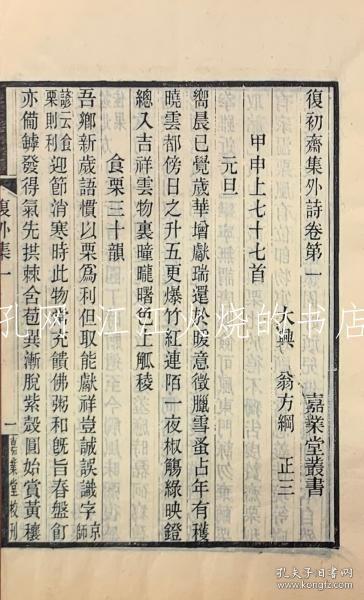 復初齋集外詩卷第一
嘉業堂叢書
大興 翁方綱 正三
甲申上七十七首
元旦
嚮晨已覺歲華增獻瑞還於暖意徵臘雪蚤占年有穫
曉雲都傍日之升五更爆竹紅連陌一夜椒觴綠映鐙
總入吉祥雲物裏曈曨曙色上觚稜
食栗三十韻
吾鄉新歲語慣以栗為利但取能獻祥豈誠誤識字京師
諺云食栗則利迎節消寒時此物常充饋佛粥和旣旨春盤飣
亦僃罅發得氣先拱棘合苞異漸脫紫殼圓始賞黃穰
復外集一
一
嘉業堂校刊
孔网 江江火烧的书店
孔夫子旧书网
www.kongfz.com